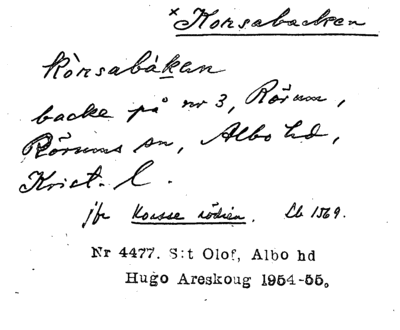 × Korsabacken
kòrsabákan
backe på nr 3, Rörum,
Rörums sn, Albo hd,
Krist. l.
jfr Korsse rödien. Lb 1569.
Nr 4477. S:t Olof, Albo hd
Hugo Areskoug 1954-55.